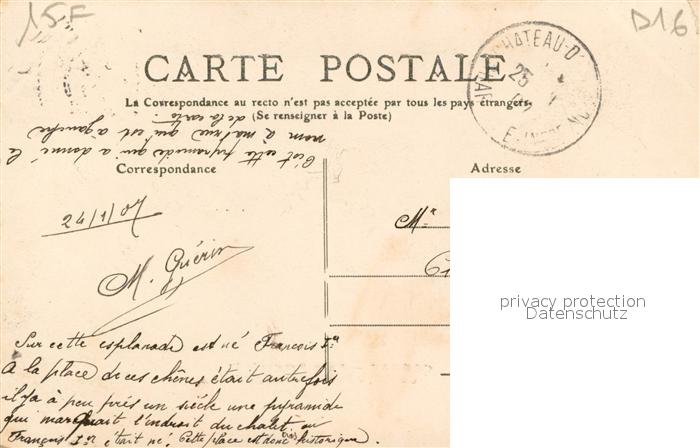 15F
D16
CARTE POSTALE
La Correspondance au recto n'est pas acceptée par tous les pays étrangers.
(Se renseigner à la Poste)
CHATEAU-D
25
C'est cette pyramide qui a donné le
nom à ma rue qui est à gauche
de la carte.
Correspondance
Adresse
24/1/07
M. Guérin
Mr
privacy protection
Datenschutz
Sur cette esplanade est né François Ier
A la place de ces chênes était autrefois
il y a à peu près un siècle une pyramide
qui marquait l'endroit du chalet ou
François Ier était né. Cette place est donc historique.